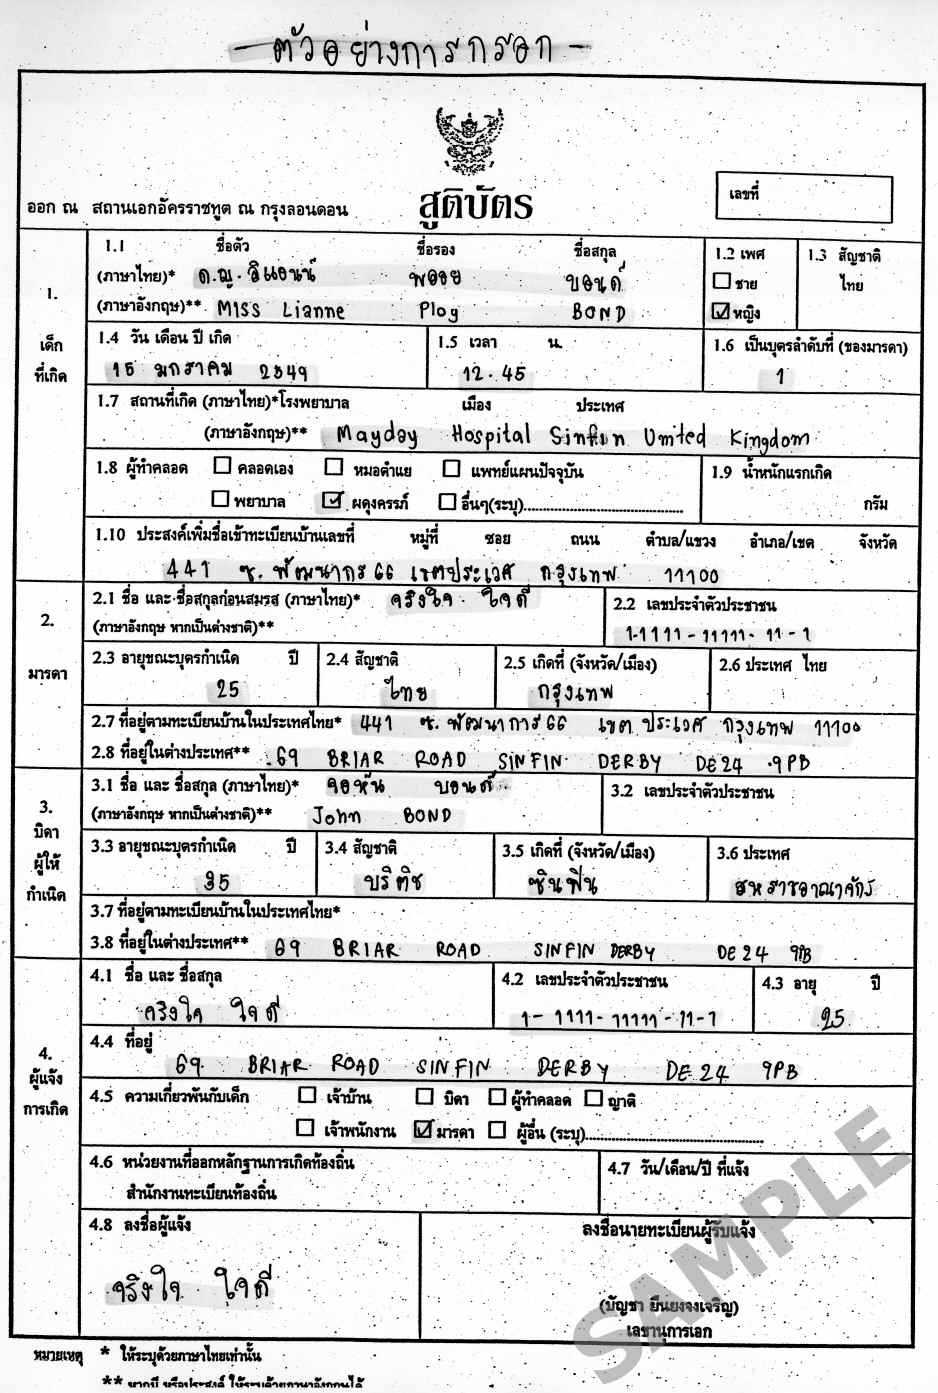 - ตัวอย่างการกรอก -
ออก ณ สถานเอกอัครราชทูต ณ กรุงลอนดอน
สูติบัตร
เลขที่
1.
เด็ก
ที่เกิด
1.1 ชื่อตัว ชื่อรอง ชื่อสกุล
(ภาษาไทย)* ด.ญ. ลิแอนน์ พลอย บอนด์
(ภาษาอังกฤษ)** MISS Lianne Ploy BOND
1.2 เพศ
ชาย
หญิง
1.3 สัญชาติ
ไทย
1.4 วัน เดือน ปี เกิด
15 มกราคม 2549
1.5 เวลา น.
12.45
1.6 เป็นบุตรลำดับที่ (ของมารดา)
1
1.7 สถานที่เกิด (ภาษาไทย)*โรงพยาบาล เมือง ประเทศ
(ภาษาอังกฤษ)** Mayday Hospital Sinfin United Kingdom
1.8 ผู้ทำคลอด คลอดเอง หมอตำแย แพทย์แผนปัจจุบัน
พยาบาล ผดุงครรภ์ อื่นๆ(ระบุ)
1.9 น้ำหนักแรกเกิด
กรัม
1.10 ประสงค์เพิ่มชื่อเข้าทะเบียนบ้านเลขที่ หมู่ที่ ซอย ถนน ตำบล/แขวง อำเภอ/เขต จังหวัด
441 ซ. พัฒนาการ 66 เขตประเวศ กรุงเทพ 11100
2.
มารดา
2.1 ชื่อ และ ชื่อสกุลก่อนสมรส (ภาษาไทย)* จริงใจ ใจดี
(ภาษาอังกฤษ หากเป็นต่างชาติ)**
2.2 เลขประจำตัวประชาชน
1-1111-11111-11-1
2.3 อายุขณะบุตรกำเนิด ปี
25
2.4 สัญชาติ
ไทย
2.5 เกิดที่ (จังหวัด/เมือง)
กรุงเทพ
2.6 ประเทศ ไทย
2.7 ที่อยู่ตามทะเบียนบ้านในประเทศไทย* 441 ซ. พัฒนาการ 66 เขต ประเวศ กรุงเทพ 11100
2.8 ที่อยู่ในต่างประเทศ** 69 BRIAR ROAD SINFIN DERBY DE24 9PB
3.
บิดา
ผู้ให้
กำเนิด
3.1 ชื่อ และ ชื่อสกุล (ภาษาไทย)* จอห์น บอนด์
(ภาษาอังกฤษ หากเป็นต่างชาติ)** John BOND
3.2 เลขประจำตัวประชาชน
3.3 อายุขณะบุตรกำเนิด ปี
35
3.4 สัญชาติ
บริติช
3.5 เกิดที่ (จังหวัด/เมือง)
ซินฟิน
3.6 ประเทศ
สหราชอาณาจักร
3.7 ที่อยู่ตามทะเบียนบ้านในประเทศไทย*
3.8 ที่อยู่ในต่างประเทศ** 69 BRIAR ROAD SINFIN DERBY DE24 9PB
4.
ผู้แจ้ง
การเกิด
4.1 ชื่อ และ ชื่อสกุล
จริงใจ ใจดี
4.2 เลขประจำตัวประชาชน
1-1111-11111-11-1
4.3 อายุ ปี
25
4.4 ที่อยู่
69 BRIAR ROAD SINFIN DERBY DE24 9PB
4.5 ความเกี่ยวพันกับเด็ก เจ้าบ้าน บิดา ผู้ทำคลอด ญาติ
เจ้าพนักงาน มารดา ผู้อื่น (ระบุ)
4.6 หน่วยงานที่ออกหลักฐานการเกิดท้องถิ่น
สำนักงานทะเบียนท้องถิ่น
4.7 วัน/เดือน/ปี ที่แจ้ง
4.8 ลงชื่อผู้แจ้ง
จริงใจ ใจดี
ลงชื่อนายทะเบียนผู้รับแจ้ง
(บัญชา ยืนยงจงเจริญ)
เลขานุการเอก
SAMPLE
หมายเหตุ * ให้ระบุด้วยภาษาไทยเท่านั้น
** หากมี หรือประสงค์ ให้ระบุด้วยภาษาอังกฤษได้